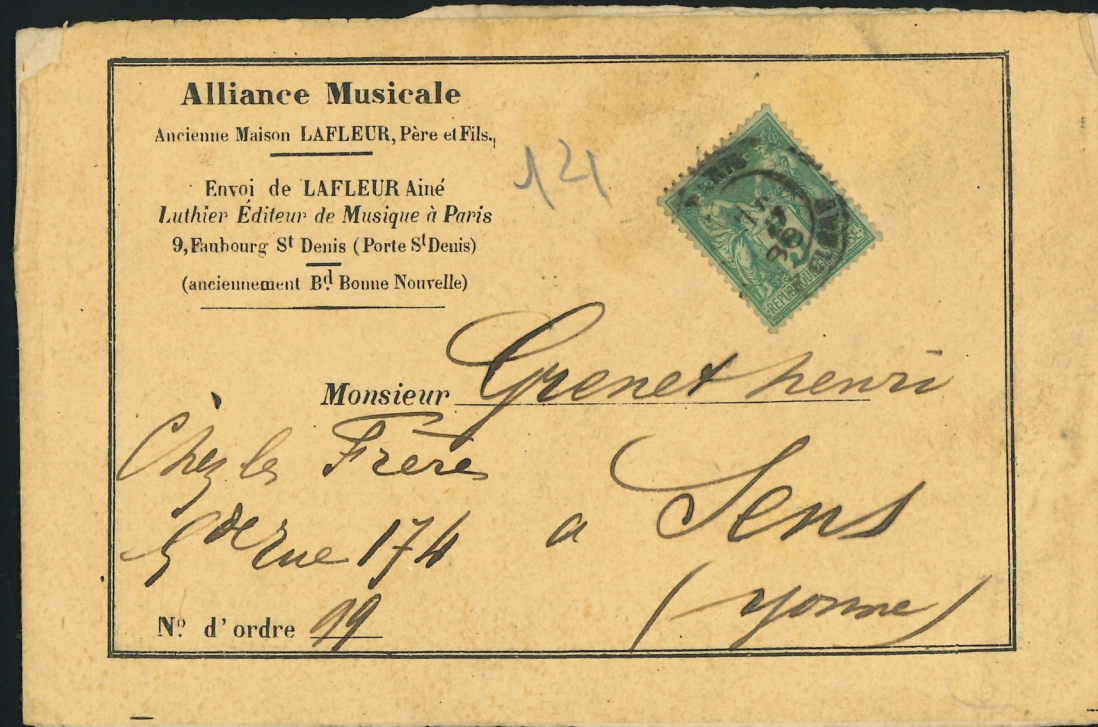 Alliance Musicale
Ancienne Maison LAFLEUR, Père et Fils.,
Envoi de LAFLEUR Ainé
Luthier Éditeur de Musique à Paris
9, Faubourg St Denis (Porte St Denis)
(anciennement Bd. Bonne Nouvelle)
121
REPUB
Monsieur Grenet henri
Chez les Frères
Gde rue 174
a Sens
(Yonne)
No. d'ordre 99